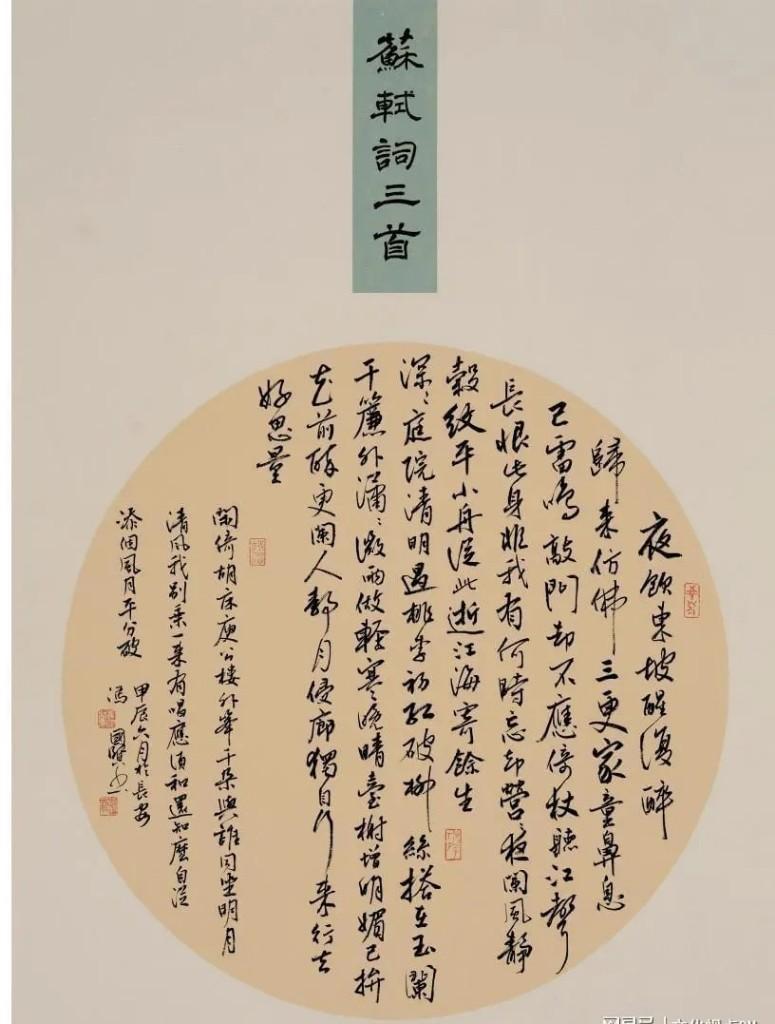 蘇軾詞三首
夜飲東坡醒復醉
歸來仿佛三更家童鼻息
已雷鳴敲門却不應倚杖聽江聲
長恨此身非我有何時忘却營〻夜闌風靜
縠紋平小舟從此逝江海寄餘生
深〻庭院清明過桃李初紅破柳絲搭在玉闌
干簾外瀟〻微雨做輕寒晚晴臺榭增明媚已拚
花前醉更闌人靜月侵廊獨自行來行去
好思量
閑倚胡床庾公樓外峯千朵與誰同坐明月
清風我別乘一來有唱應須和還知麼自從
添個風月平分破
甲辰六月於長安
馮國賢